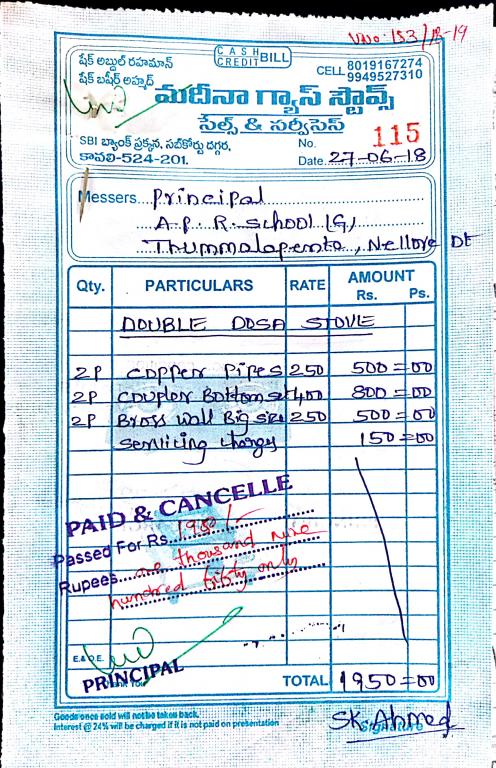 V.No: 153/18-19
CASH
CREDIT BILL
షేక్ అబ్దుల్ రహమాన్
షేక్ బషీర్ అహ్మద్
CELL 8019167274
9949527310
మదీనా గ్యాస్ స్టౌవ్స్
సేల్స్ & సర్వీసెస్
SBI బ్యాంక్ ప్రక్కన, సబ్‌కోర్టు దగ్గర,
కావలి-524-201.
No. 115
Date. 27-06-18
Messers. Principal
A.P.R. School (G)
Thummalapenta, Nellore Dt
Qty. PARTICULARS RATE AMOUNT
Rs. Ps.
DOUBLE DOSA STOVE
2P Copper Pipes 250 500=00
2P Coupler Bottom set 400 800=00
2P Bross Wall Big size 250 500=00
Servicing Charges 150=00
PAID & CANCELLE
Passed For Rs. 1950/-
Rupees one thousand nine
hundred fifty only
E.& O.E.
PRINCIPAL
TOTAL 1950=00
Goods once sold will not be taken back.
Interest @ 24% will be charged if it is not paid on presentation
SK. Ahmed
Signature